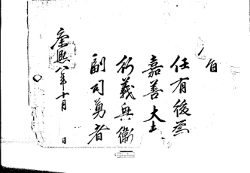 旨
任有後為
嘉善大夫
行義興衛
副司勇者
建文八年十月　日